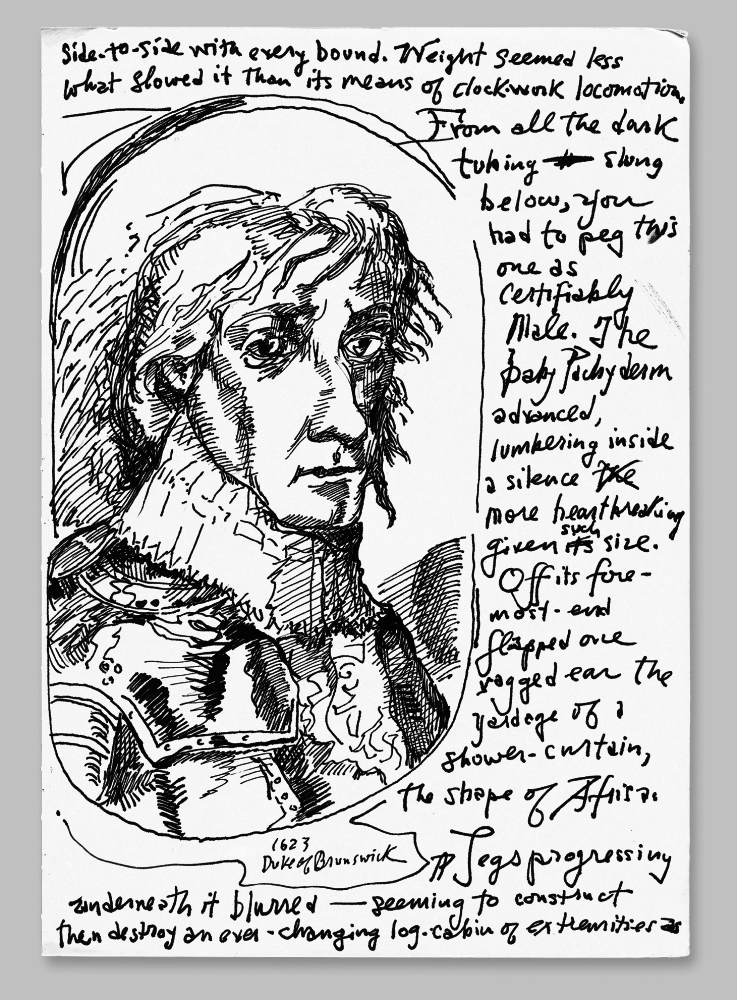 Side-to-side with every bound. Weight seemed less
what slowed it than its means of clock-work locomotion.
From all the dark
tubing slung
below, you
had to peg this
one as
certifiably
Male. The
baby Pachyderm
advanced,
lumbering inside
a silence the
more heartbreaking
such
given its size.
Off its fore-
most-end
flapped one
ragged ear the
yardage of a
shower-curtain,
the shape of Africa.
1623
Duke of Brunswick
Legs progressing
underneath it blurred — seeming to construct
then destroy an ever-changing log-cabin of extremities as